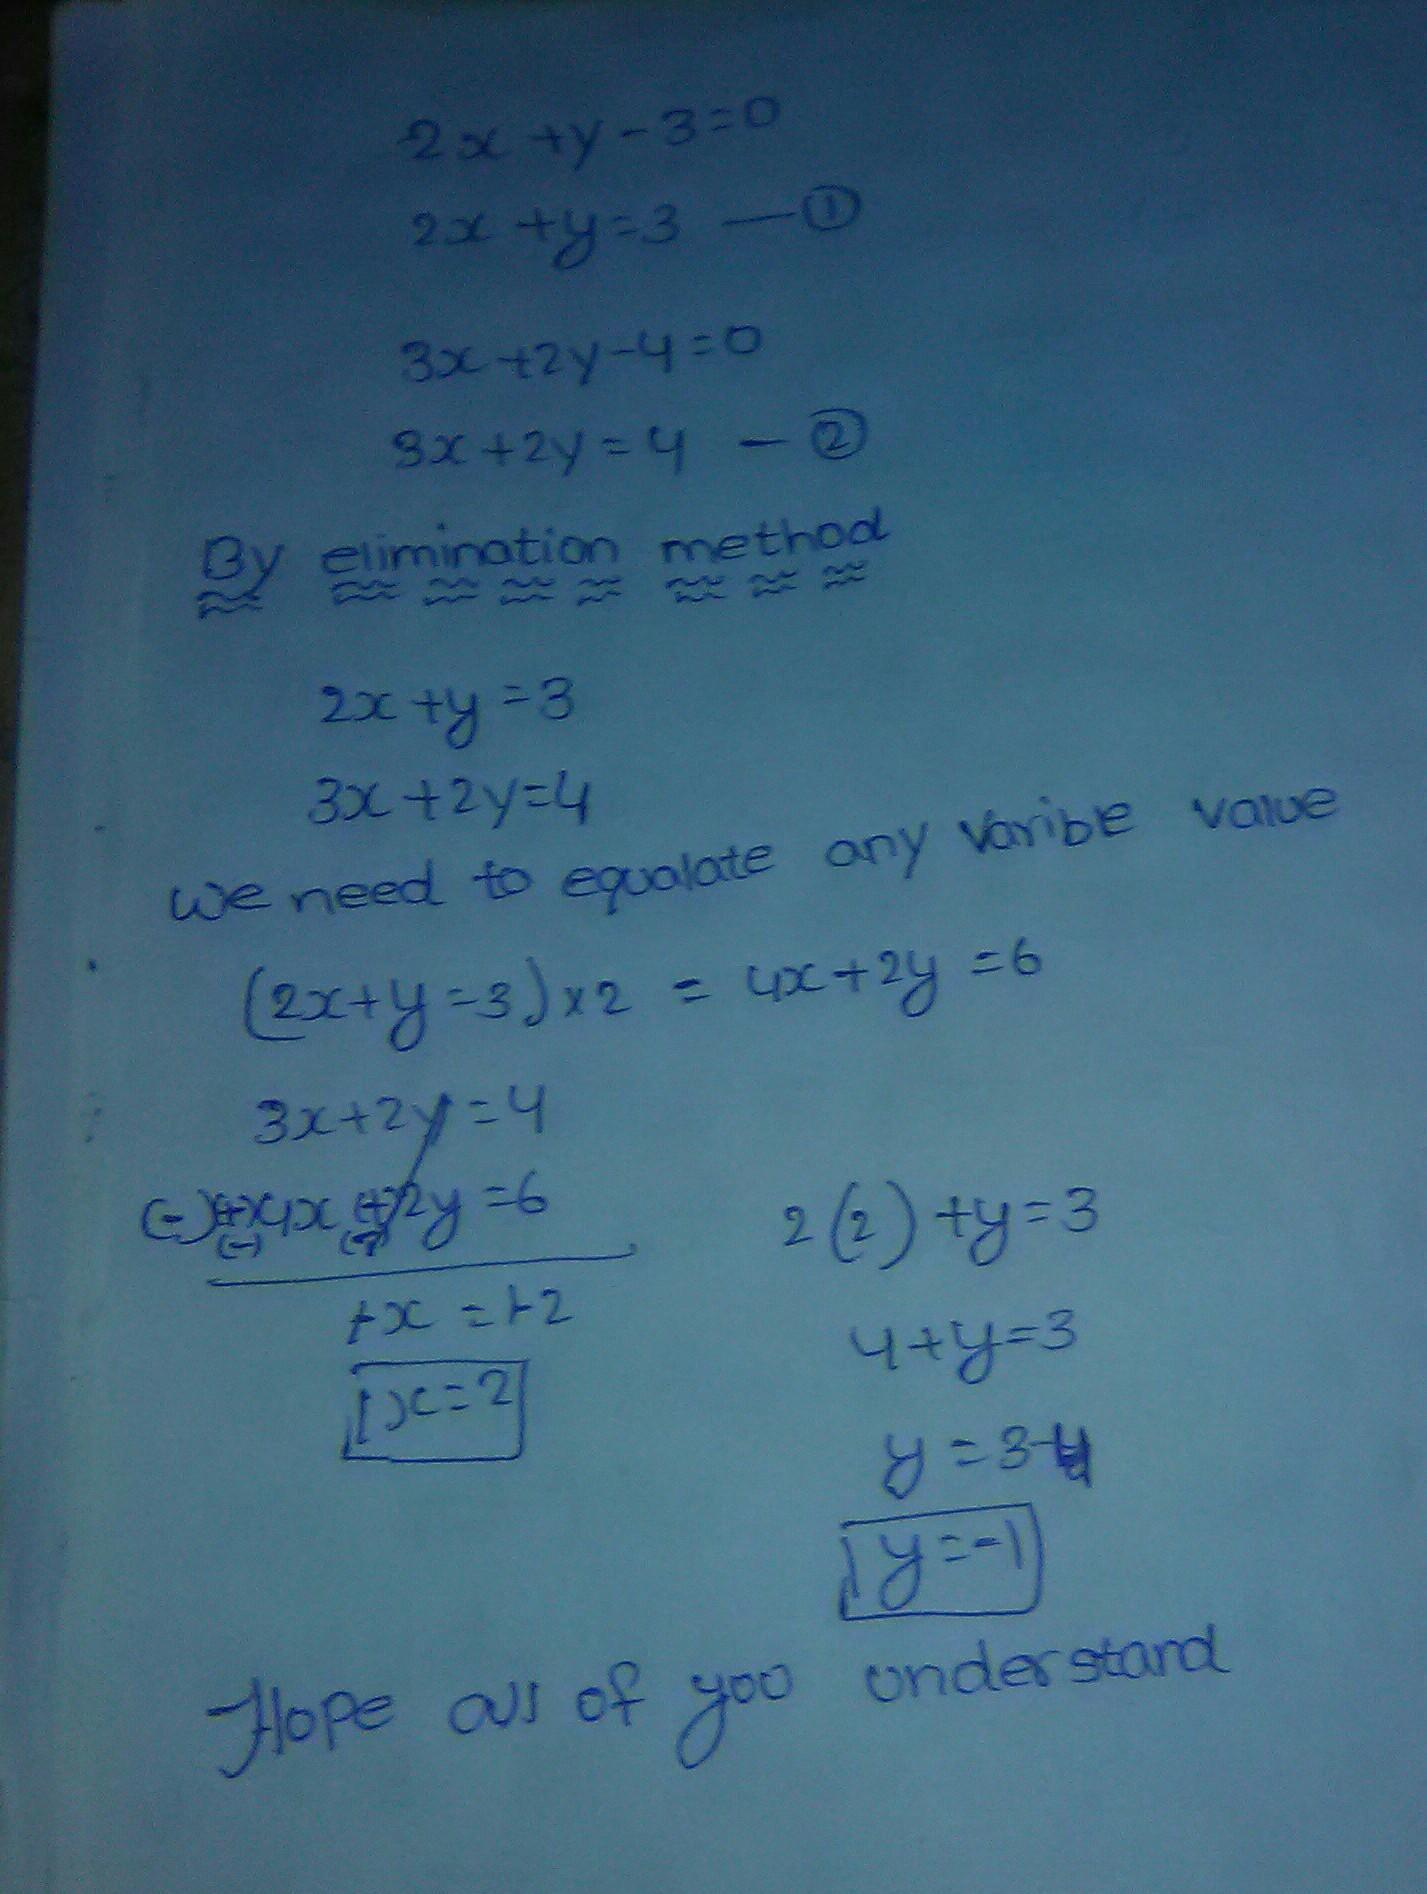 2x+y-3=0
2x+y=3 —①
3x+2y-4=0
3x+2y=4 -②
By elimination method
2x+y=3
3x+2y=4
we need to equalate any varible value
(2x+y=3)x2 = 4x+2y=6
3x+2y=4
(-) (+)4x (+)2y=6
(-) (-)
+x=+2
x=2
2(2)+y=3
4+y=3
y=3-4
y=-1
Hope all of you understand